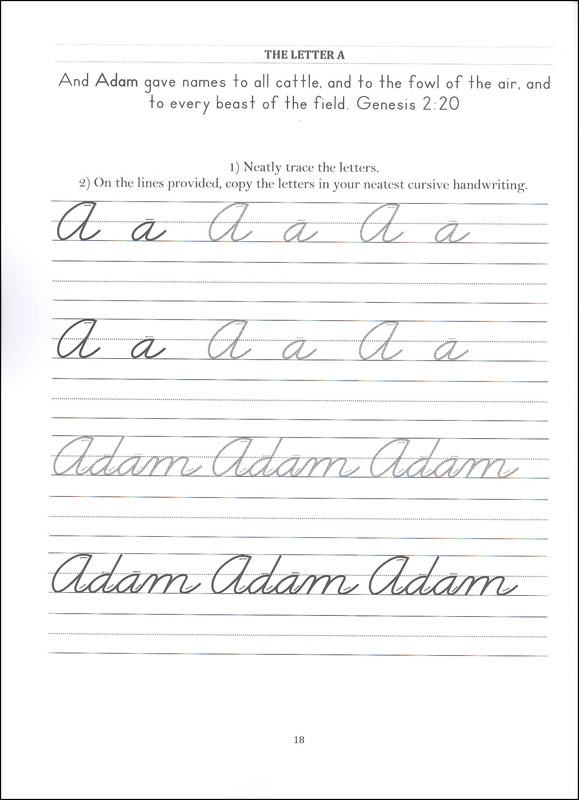 THE LETTER A
And Adam gave names to all cattle, and to the fowl of the air, and
to every beast of the field. Genesis 2:20
1) Neatly trace the letters.
2) On the lines provided, copy the letters in your neatest cursive handwriting.
A a A a A a
A a A a A a
Adam Adam Adam
Adam Adam Adam
18